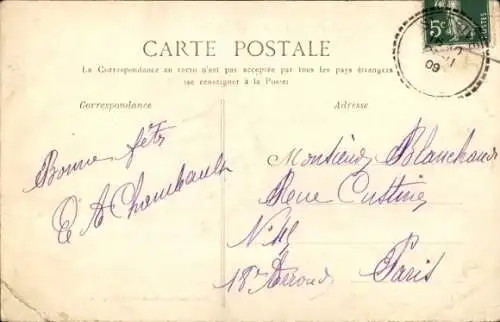 5c
POSTES
09
CARTE POSTALE
La Correspondance au recto n'est pas acceptée par tous les pays étrangers
(se renseigner à la Poste)
Correspondance
Adresse
Bonne fête
E A Chambault
Monsieur Blanchaud
Rue Custine
18e Arrond Paris